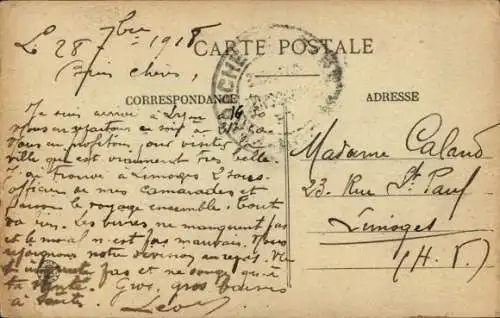 Le 28 7bre 1918
CARTE POSTALE
Bien chers,
CORRESPONDANCE
ADRESSE
Je suis arrivé à Lyon
Nous en repartons ce soir à
Nous en profitons pour visiter la
ville qui est vraiment très belle.
J'ai trouvé à Limoges 2 sous-
officiers de mes camarades et
faisons le voyage ensemble. Tout
va bien. Les vivres ne manquent pas
et le moral n'est pas mauvais. Nous
rejoignons notre division au repos. Ne
pas et ne songe qu'à
ta santé. Gros, gros baisers
à toutes. Léon
Madame Caland
23. Rue St Paul
Limoges
(H. V.)